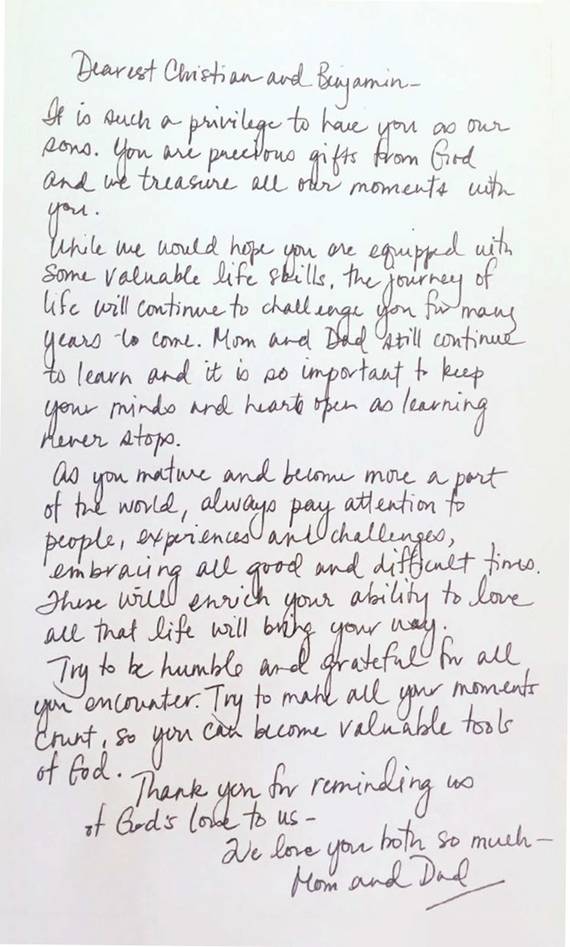 Dearest Christian and Benjamin-
It is such a privilege to have you as our
sons. You are precious gifts from God
and we treasure all our moments with
you.
While we would hope you are equipped with
some valuable life skills, the journey of
life will continue to challenge you for many
years to come. Mom and Dad still continue
to learn and it is so important to keep
your minds and hearts open as learning
never stops.
As you mature and become more a part
of the world, always pay attention to
people, experiences and challenges,
embracing all good and difficult times.
These will enrich your ability to love
all that life will bring your way.
Try to be humble and grateful for all
you encounter. Try to make all your moments
count, so you can become valuable tools
of God.
Thank you for reminding us
of God's love to us-
We love you both so much-
Mom and Dad